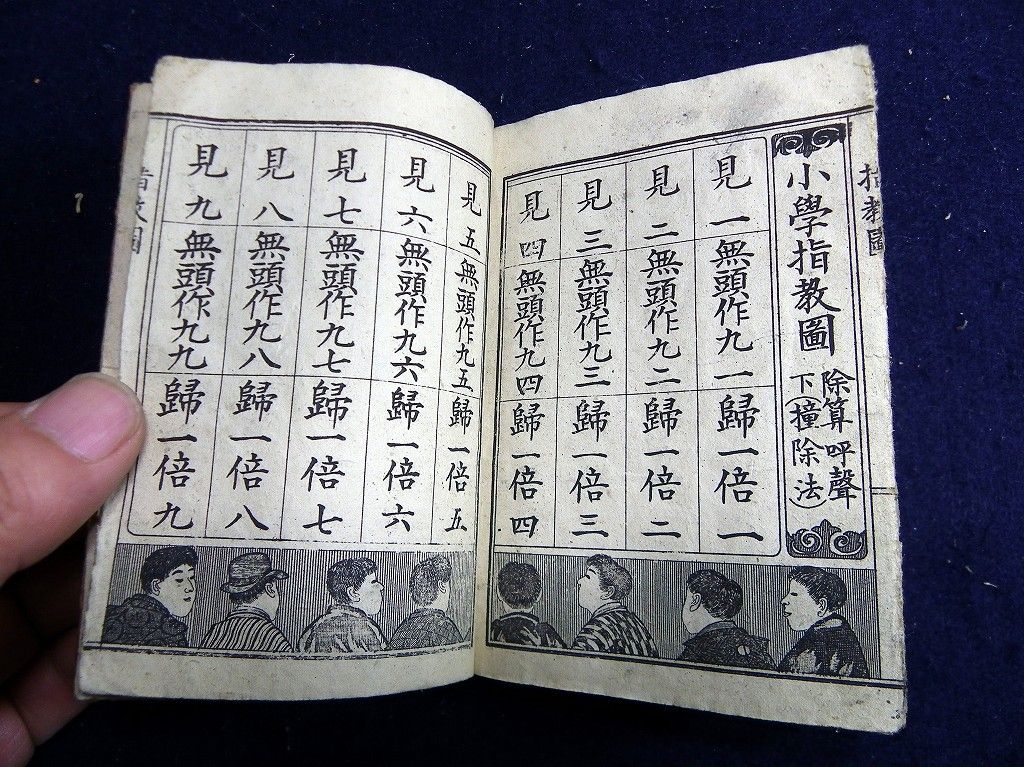 指教圖
小學指教圖
除算呼聲
下(撞除法)
見一無頭作九一歸一倍一
見二無頭作九二歸一倍二
見三無頭作九三歸一倍三
見四無頭作九四歸一倍四
見五無頭作九五歸一倍五
見六無頭作九六歸一倍六
見七無頭作九七歸一倍七
見八無頭作九八歸一倍八
見九無頭作九九歸一倍九
指教圖